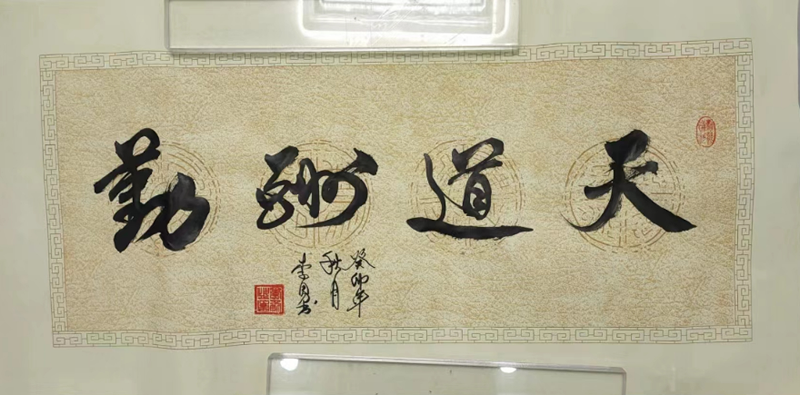 天道酬勤
癸卯年
秋月